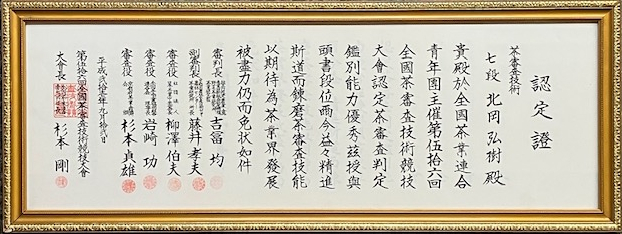 認定證
茶審査技術
七段 北岡弘樹殿
貴殿於全國茶業連合
青年團主催第伍拾六回
全國茶審査技術競技
大會認定茶審査判定
鑑別能力優秀茲授與
頭書段位而今益々精進
斯道而錬磨茶審査技能
以期待為茶業界發展
被盡力仍而免状如件
平成弐拾
年九月拾
日
第伍拾六回全國茶審査技術競技大會
大會長 杉本 剛
審判長
吉富 均
副審判長
藤井孝夫
審査役
柳澤伯夫
審査役
岩崎 功
審査役
杉本貞雄